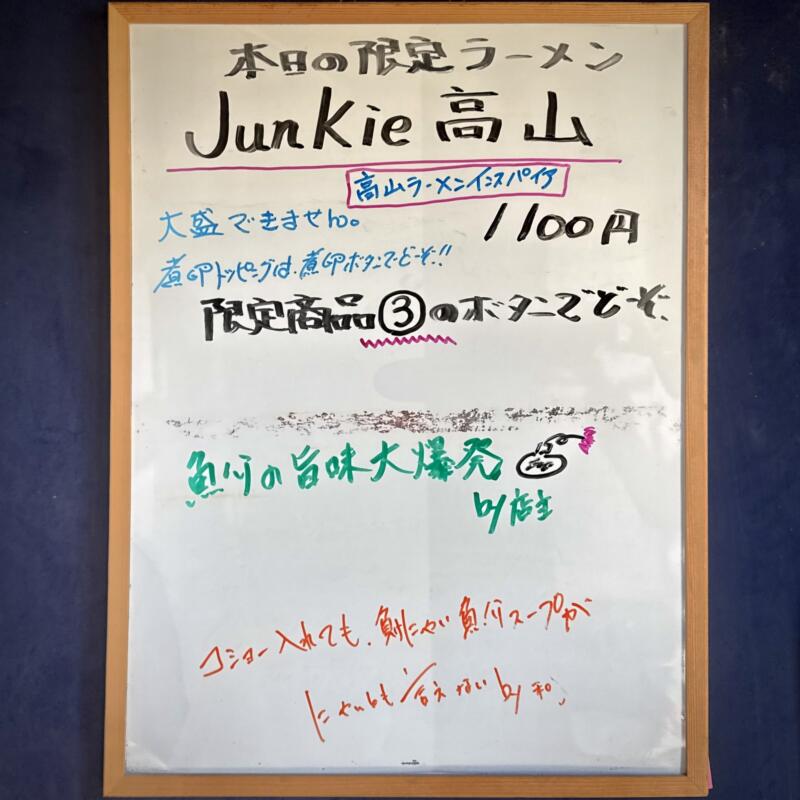 本日の限定ラーメン
Junkie 高山
高山ラーメンインスパイア
大盛できません。
1100円
煮卵トッピングは、煮卵ボタンでどーぞ!!
限定商品③のボタンでどーぞ。
魚介の旨味大爆発
by 店主
コショー入れても、負けない魚介スープが
言えない by 和